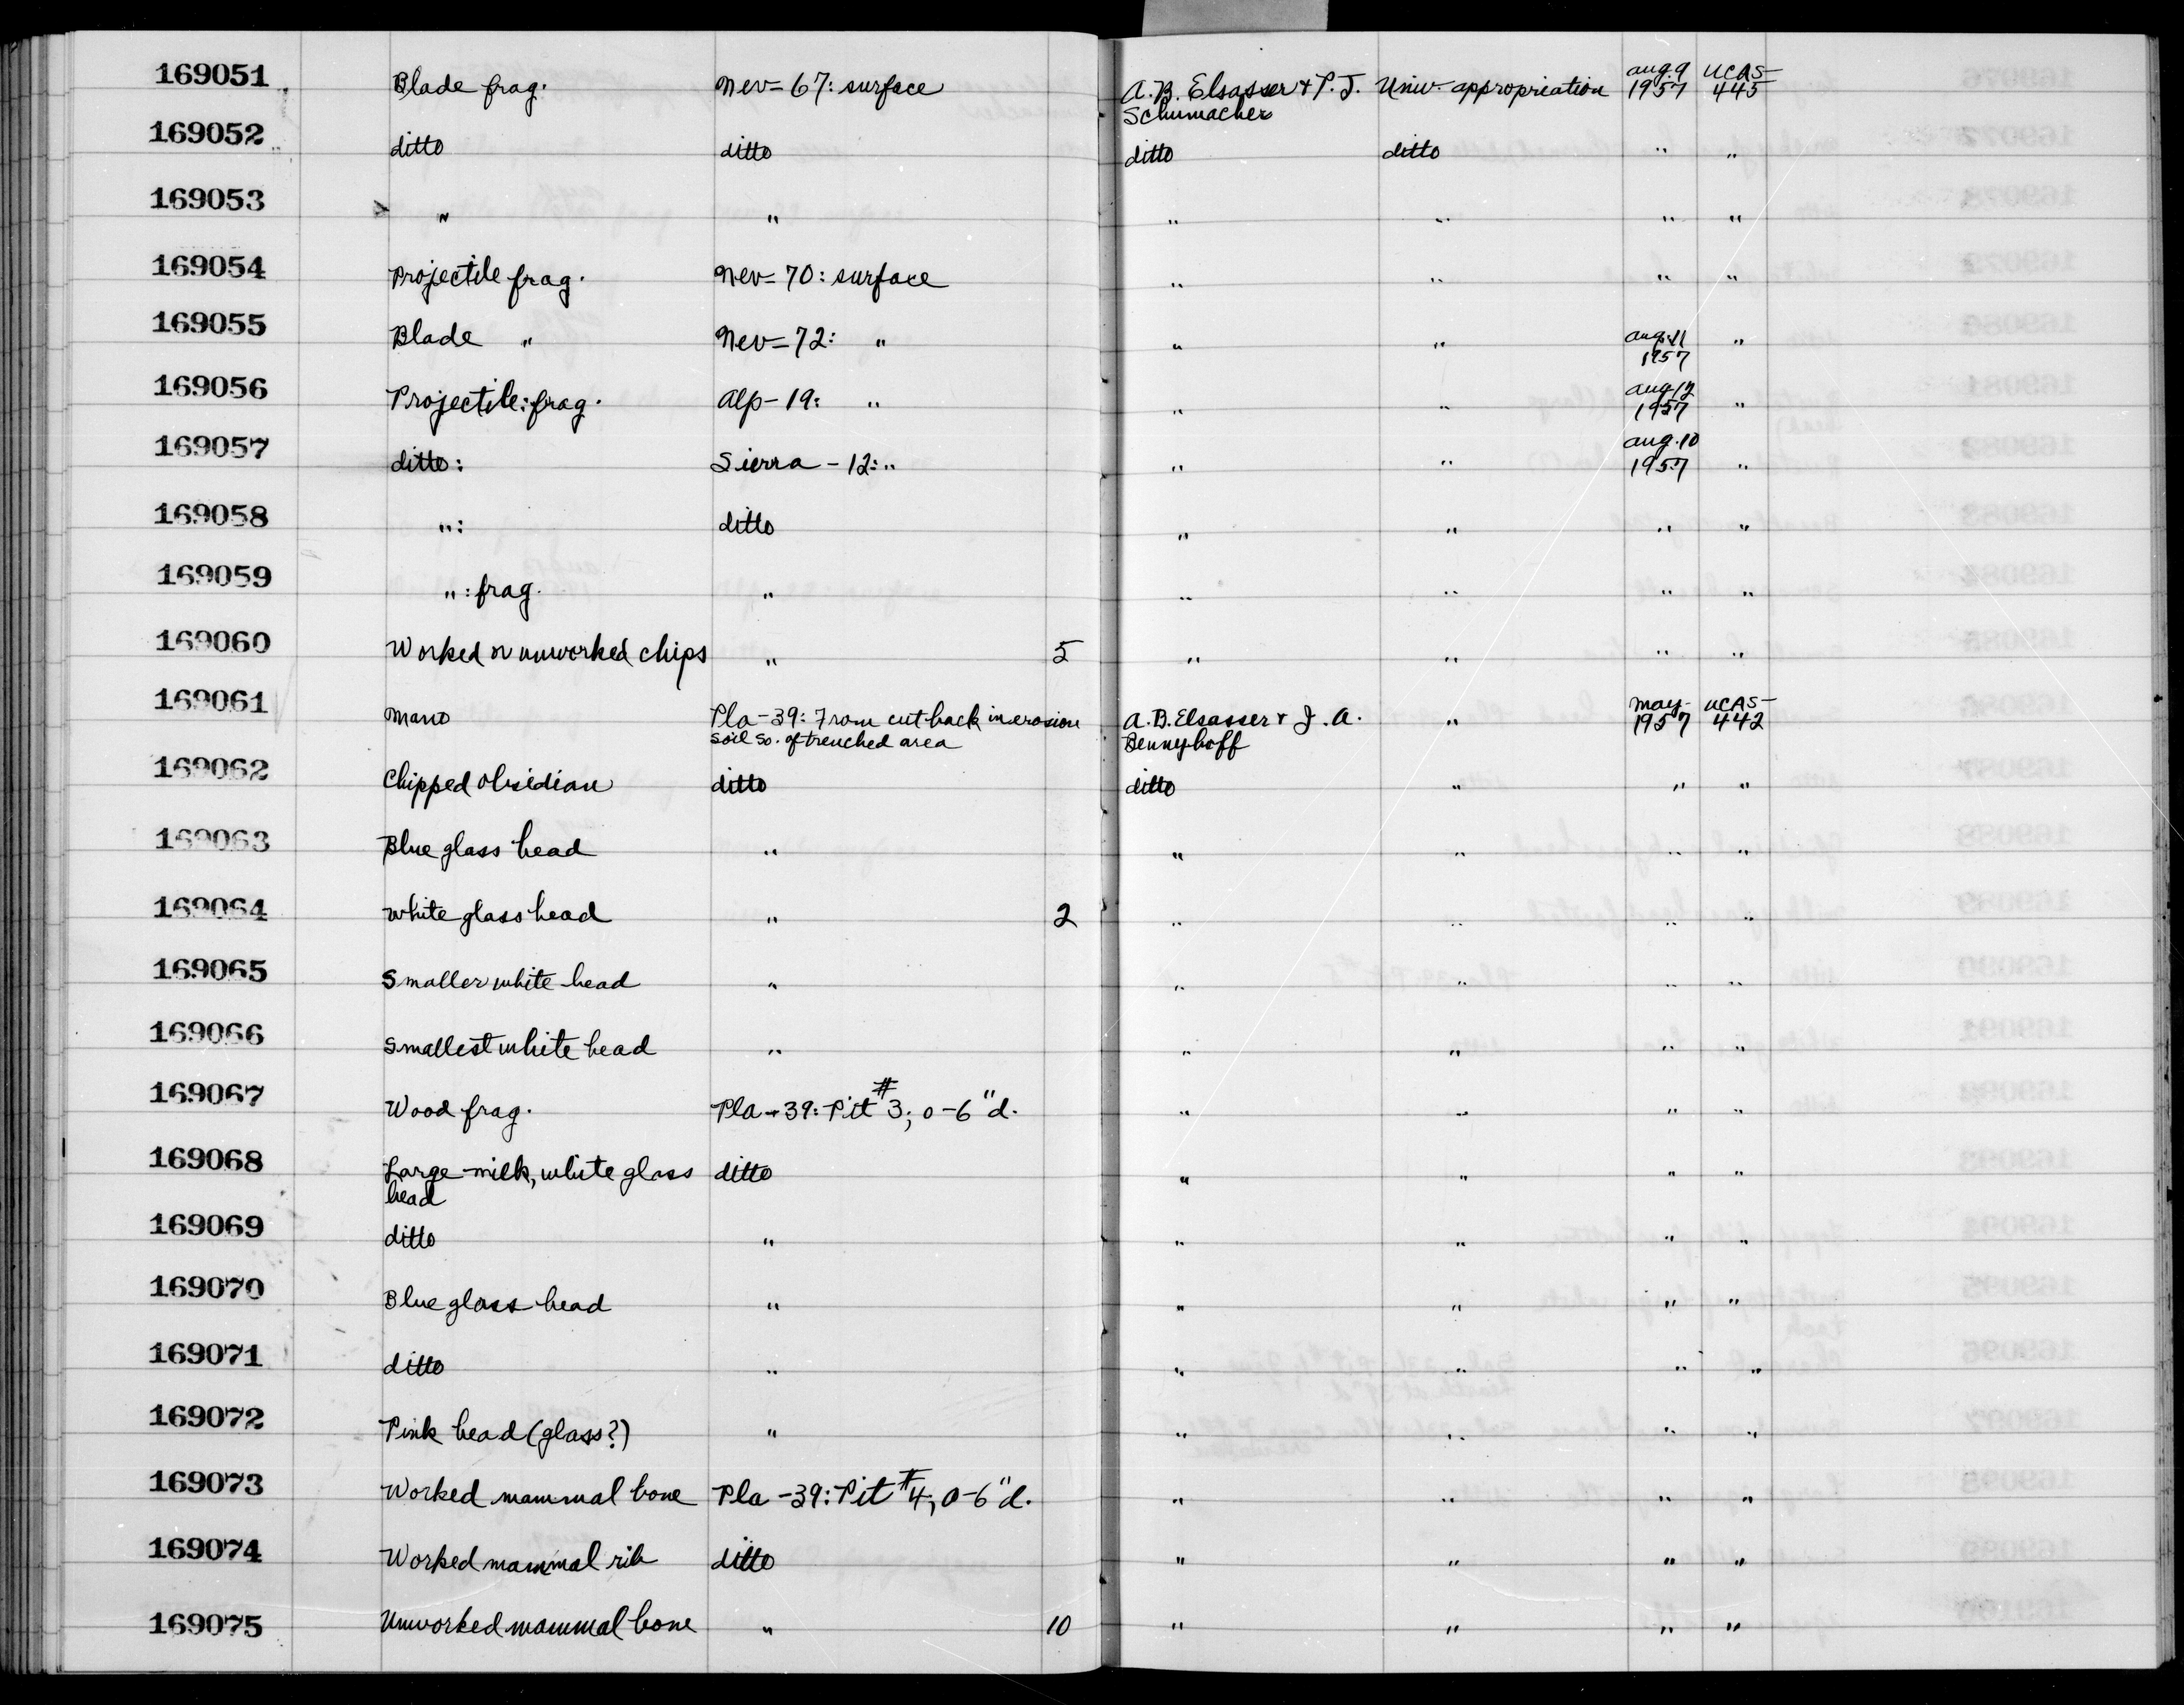 169051 Blade frag. Nev-67: surface A.B. Elsasser & P.J. Schumacher Univ. appropriation Aug. 9 1957 UCAS-445
169052 ditto ditto ditto ditto " "
169053 " " " " " "
169054 Projectile frag. Nev-70: surface " " " "
169055 Blade " Nev-72: " " " Aug. 11 1957 "
169056 Projectile: frag. Alp-19: " " " Aug. 12 1957 "
169057 ditto: Sierra-12: " " " Aug. 10 1957 "
169058 ": ditto " " " "
169059 ": frag. " " " " "
169060 Worked or unworked chips " 5 " " " "
169061 Mano Pla-39: From cut back in erosion soil so. of trenched area A.B. Elsasser & J.A. Bennyhoff " May 1957 UCAS-442
169062 Chipped obsidian ditto ditto " " "
169063 Blue glass bead " " " " "
169064 White glass bead " 2 " " " "
169065 Smaller white bead " " " " "
169066 Smallest white bead " " " " "
169067 Wood frag. Pla-39: Pit #3; 0-6" d. " " " "
169068 Large milk, white glass bead ditto " " " "
169069 ditto " " " " "
169070 Blue glass bead " " " " "
169071 ditto " " " " "
169072 Pink bead (glass?) " " " " "
169073 Worked mammal bone Pla-39: Pit #4; 0-6" d. " " " "
169074 Worked mammal rib ditto " " " "
169075 Unworked mammal bone " 10 " " " "